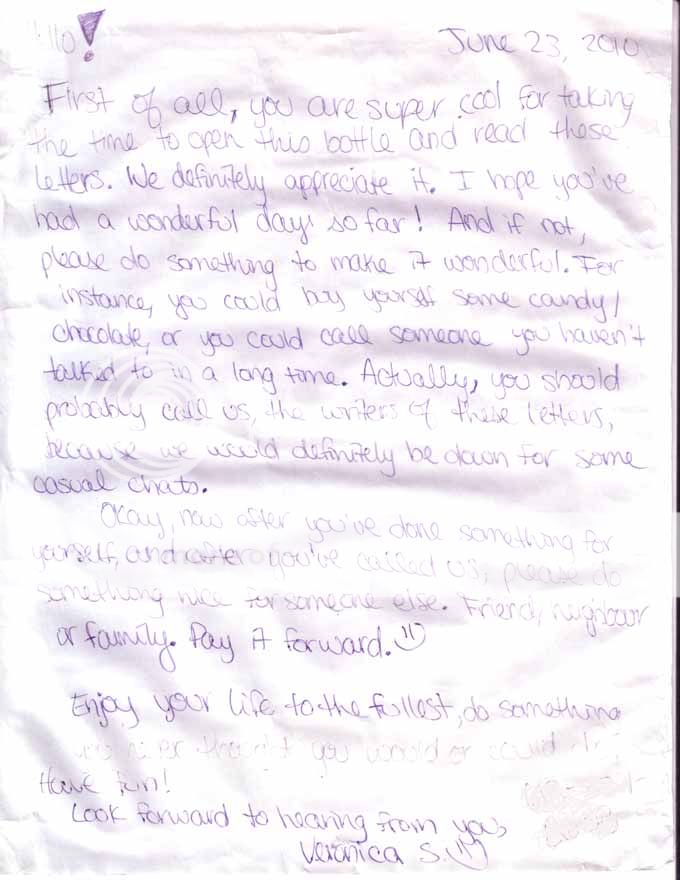 llo! June 23, 2010
First of all, you are super cool for taking
the time to open this bottle and read these
letters. We definitely appreciate it. I hope you've
had a wonderful day so far! And if not,
please do something to make it wonderful. For
instance, you could buy yourself some candy/
chocolate, or you could call someone you haven't
talked to in a long time. Actually, you should
probably call us, the writers of these letters,
because we would definitely be down for some
casual chats.
Okay, now after you've done something for
yourself, and after you've called us, please do
something nice for someone else. Friend, neighbour
or family. Pay it forward.
Enjoy your life to the fullest, do something
you never thought you would or could do!
Have fun!
Look forward to hearing from you,
Veronica S.